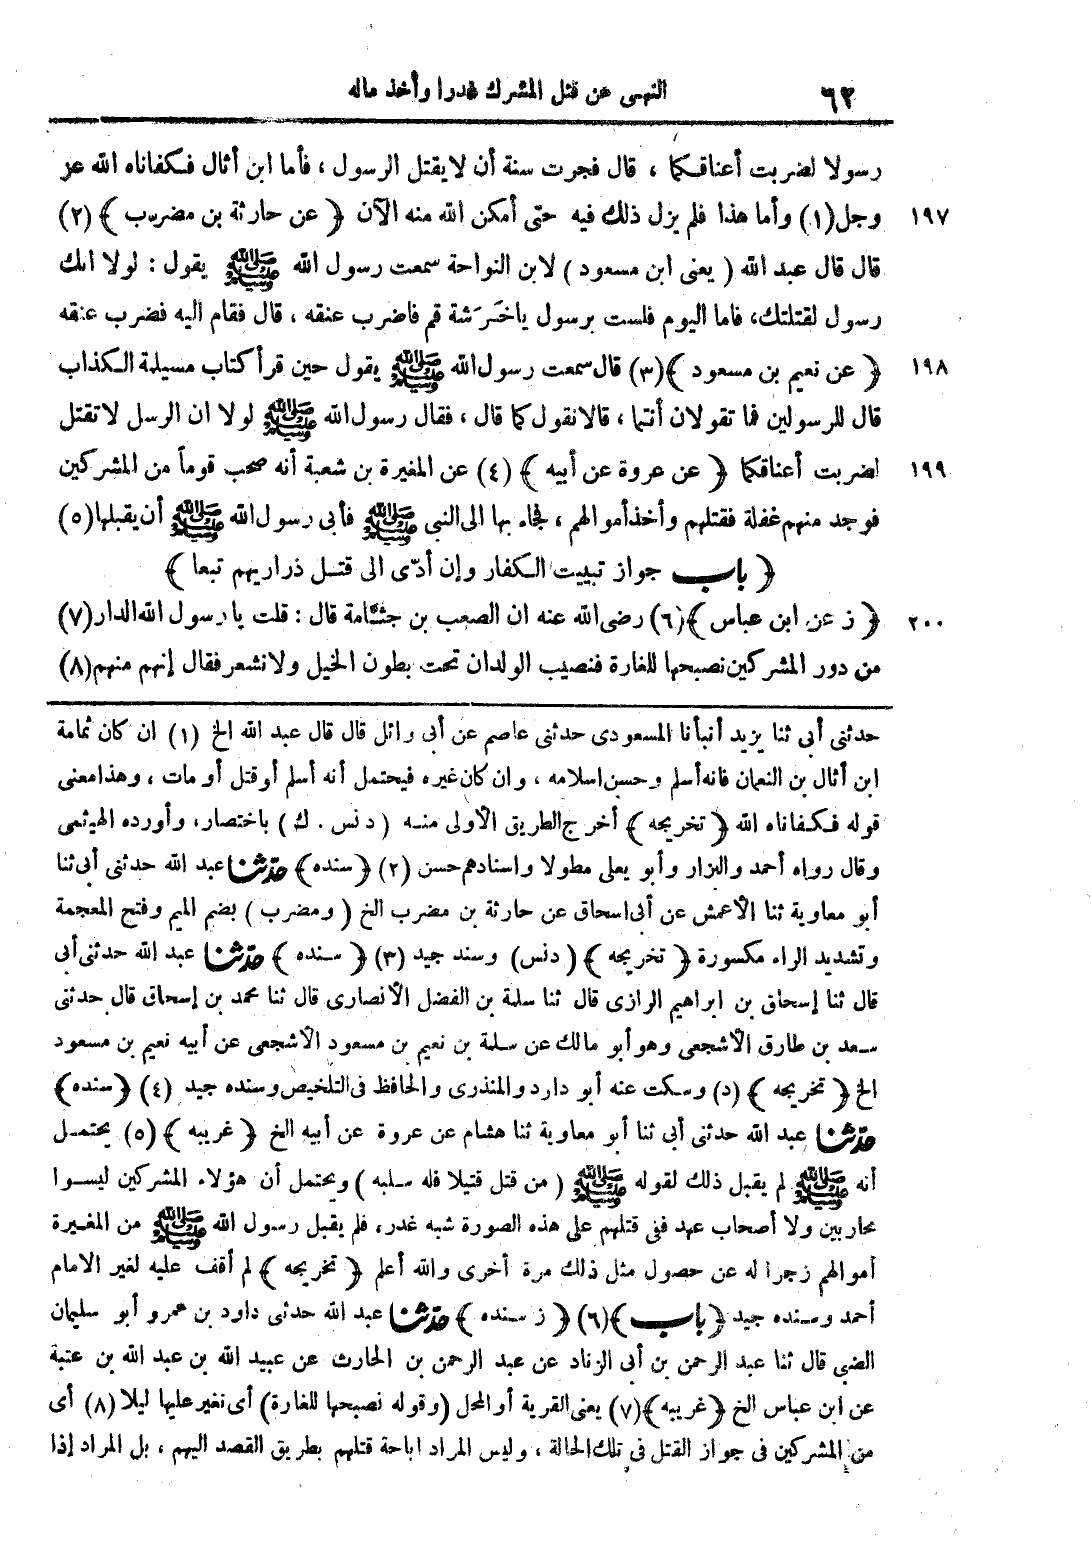 ٦٢ النهى عن قتل المشرك غدرا وأخذ ماله
رسولا لضربت أعناقكما ، قال فجرت سنة أن لا يقتل الرسول ، فأما ابن أثال فكفاناه الله عز
١٩٧ وجل(١) وأما هذا فلم يزل ذلك فيه حتى أمكن الله منه الآن ﴿ عن حارثة بن مضرب ﴾(٢)
قال قال عبد الله ( يعنى ابن مسعود ) لابن النواحة سمعت رسول الله ﷺ يقول : لولا انك
رسول لقتلتك، فاما اليوم فلست برسول ياخَرَشة قم فاضرب عنقه ، قال فقام اليه فضرب عنقه
١٩٨ ﴿ عن نعيم بن مسعود ﴾(٣) قال سمعت رسول الله ﷺ يقول حين قرأ كتاب مسيلمة الكذاب
قال للرسولين فما تقولان أنتما ، قالا نقول كما قال ، فقال رسول الله ﷺ لولا ان الرسل لا تقتل
١٩٩ لضربت أعناقكما ﴿ عن عروة عن أبيه ﴾ (٤) عن المغيرة بن شعبة أنه صحب قوماً من المشركين
فوجد منهم غفلة فقتلهم وأخذ أموالهم ، فجاء بها الى النبى ﷺ فأبى رسول الله ﷺ أن يقبلها(٥)
﴿ باب جواز تبييت الكفار وإن أدّى الى قتل ذراريهم تبعا ﴾
٢٠٠ ﴿ ز عن ابن عباس ﴾(٦) رضى الله عنه ان الصعب بن جثَّامة قال : قلت يا رسول الله الدار(٧)
من دور المشركين نصبحها للغارة فنصيب الولدان تحت بطون الخيل ولا نشعر فقال إنهم منهم(٨)
حدثنى أبى ثنا يزيد أنبأنا المسعودى حدثنى عاصم عن أبى وائل قال قال عبد الله الخ (١) ان كان ثمامة
ابن أثال بن النعمان فانه أسلم وحسن اسلامه ، وان كان غيره فيحتمل أنه أسلم أو قتل أو مات ، وهذا معنى
قوله فكفاناه الله ﴿ تخريجه ﴾ أخرج الطريق الأولى منه ( د نس . ك ) باختصار، وأورده الهيثمى
وقال رواه أحمد والبزار وأبو يعلى مطولا واسنادهم حسن (٢) ﴿ سنده ﴾ حدّثنا عبد الله حدثنى أبى ثنا
أبو معاوية ثنا الأعمش عن أبى اسحاق عن حارثة بن مضرب الخ ( ومضرب ) بضم الميم وفتح المعجمة
وتشديد الراء مكسورة ﴿ تخريجه ﴾ (د نس) وسند جيد (٣) ﴿ سنده ﴾ حدّثنا عبد الله حدثنى أبى
قال ثنا إسحاق بن ابراهيم الرازى قال ثنا سلمة بن الفضل الأنصارى قال ثنا محمد بن إسحاق قال حدثنى
سعد بن طارق الأشجعى وهو أبو مالك عن سلمة بن نعيم بن مسعود الأشجعى عن أبيه نعيم بن مسعود
الخ ﴿ تخريجه ﴾ (د) وسكت عنه أبو دارد والمنذرى والحافظ فى التلخيص وسنده جيد (٤) ﴿ سنده ﴾
حدّثنا عبد الله حدثنى أبى ثنا أبو معاوية ثنا هشام عن عروة عن أبيه الخ ﴿ غريبه ﴾ (٥) يحتمل
أنه ﷺ لم يقبل ذلك لقوله ﷺ ( من قتل قتيلا فله سلبه ) ويحتمل أن هؤلاء المشركين ليسوا
محاربين ولا أصحاب عهد ففى قتلهم على هذه الصورة شبه غدر، فلم يقبل رسول الله ﷺ من المغيرة
أموالهم زجرا له عن حصول مثل ذلك مرة أخرى والله أعلم ﴿ تخريجه ﴾ لم أقف عليه لغير الامام
أحمد وسنده جيد ﴿ باب ﴾(٦) ﴿ ز سنده ﴾ حدّثنا عبد الله حدثى داود بن عمرو أبو سليمان
الضبى قال ثنا عبد الرحمن بن أبى الزناد عن عبد الرحمن بن الحارث عن عبيد الله بن عبد الله بن عتبة
عن ابن عباس الخ ﴿ غريبه ﴾(٧) يعنى القرية أو المحل (وقوله نصبحها للغارة) أى نغير عليها ليلا (٨) أى
من المشركين فى جواز القتل فى تلك الحالة ، وليس المراد اباحة قتلهم بطريق القصد اليهم ، بل المراد إذا